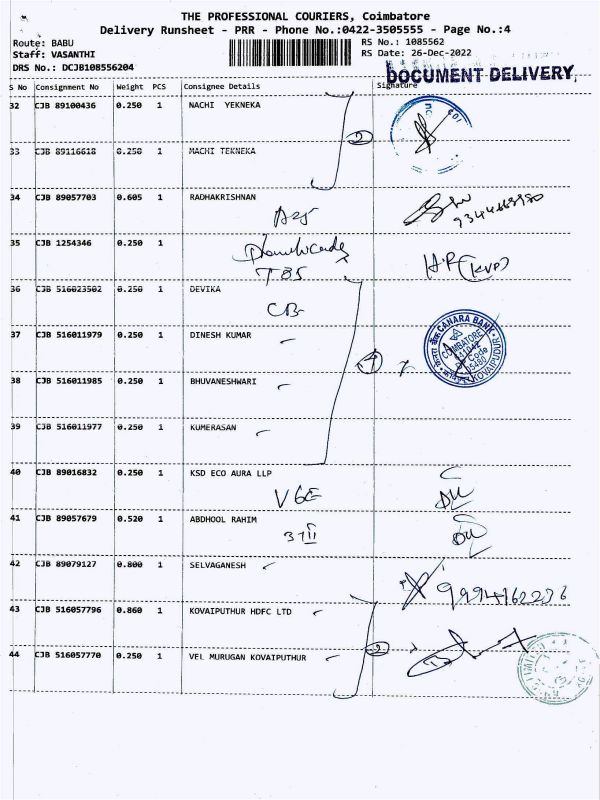 THE PROFESSIONAL COURIERS, Coimbatore
Delivery Runsheet - PRR - Phone No.:0422-3505555 - Page No.:4
Route: BABU
Staff: VASANTHI
DRS No.: DCJB108556204
RS No.: 1085562
RS Date: 26-Dec-2022
DOCUMENT DELIVERY
S No Consignment No Weight PCS Consignee Details Signature
32 CJB 89100436 0.250 1 NACHI YEKNEKA
2
33 CJB 89116618 0.250 1 MACHI TEKNEKA
34 CJB 89057703 0.605 1 RADHAKRISHNAN
35 CJB 1254346 0.250 1
TBS
H.P (KVP)
36 CJB 516023502 0.250 1 DEVIKA
CB
37 CJB 516011979 0.250 1 DINESH KUMAR
CANARA BANK
COIMBATORE
KOVAIPUDUR
38 CJB 516011985 0.250 1 BHUVANESHWARI
39 CJB 516011977 0.250 1 KUMERASAN
40 CJB 89016832 0.250 1 KSD ECO AURA LLP
VGE
41 CJB 89057679 0.520 1 ABDHOOL RAHIM
42 CJB 89079127 0.800 1 SELVAGANESH
9994162226
43 CJB 516057796 0.860 1 KOVAIPUTHUR HDFC LTD
44 CJB 516057770 0.250 1 VEL MURUGAN KOVAIPUTHUR